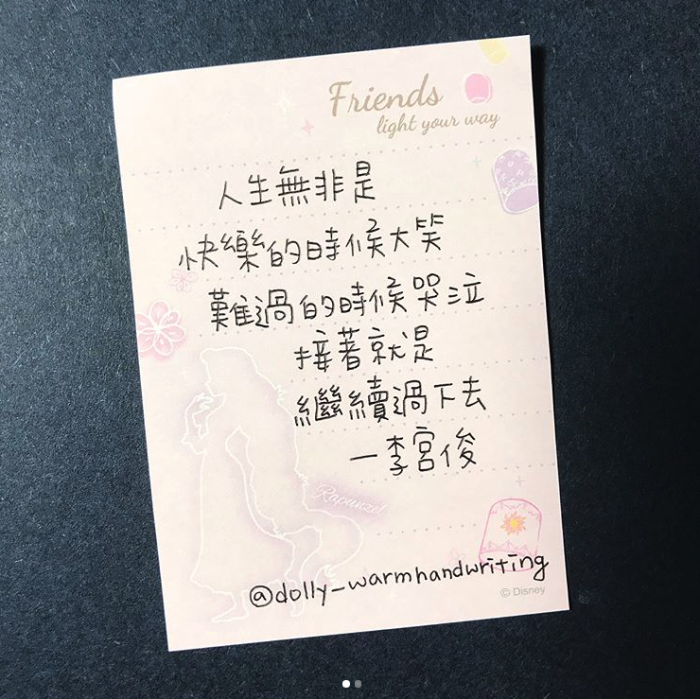 Friends
light your way
人生無非是
快樂的時候大笑
難過的時候哭泣
接著就是
繼續過下去
—李宮俊
Rapunzel
@dolly_warmhandwriting
© Disney